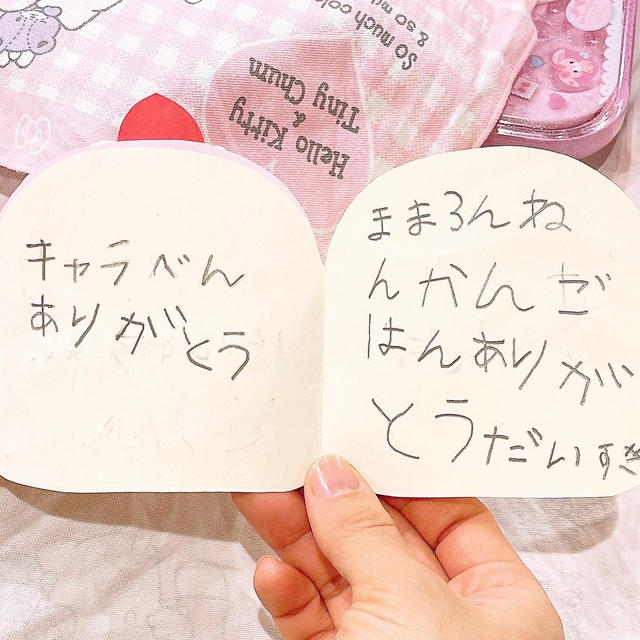 キャラべん
ありがとう
まま3んね
んかんご
はんありが
とうだいすき
Hello Kitty
&
Tiny Chum
So much
& so mu